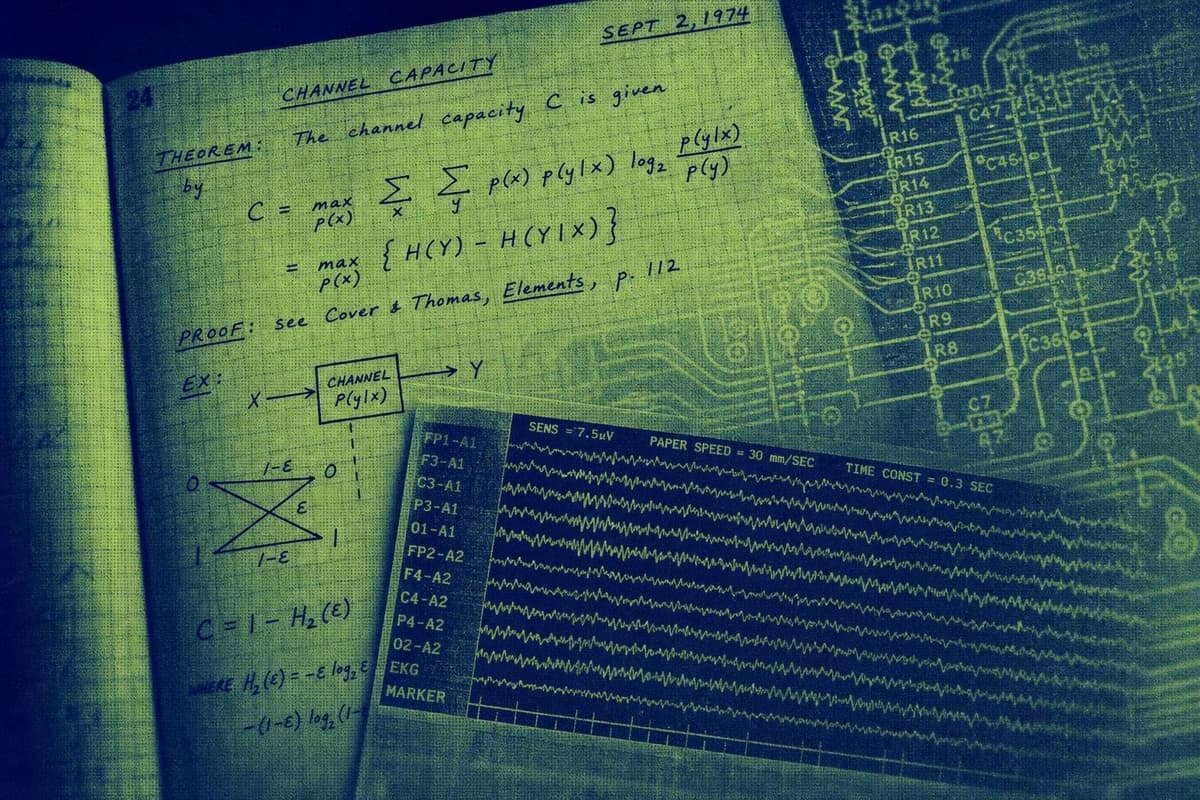 24
SEPT 2, 1974
CHANNEL CAPACITY
THEOREM: The channel capacity C is given
by
C = max p(x) Σ x Σ y p(x) p(y|x) log₂ p(y|x) / p(y)
= max p(x) { H(Y) - H(Y|X) }
PROOF: see Cover & Thomas, Elements, p. 112
EX:
X → CHANNEL → Y
P(y|x)
0 1-ε 0
ε
1 1-ε 1
C = 1 - H₂(ε)
WHERE H₂(ε) = -ε log₂ ε
-(1-ε) log₂ (1-
SENS = 7.5uV PAPER SPEED = 30 mm/SEC TIME CONST = 0.3 SEC
FP1-A1
F3-A1
C3-A1
P3-A1
O1-A1
FP2-A2
F4-A2
C4-A2
P4-A2
O2-A2
EKG
MARKER
C47
R16
R15
C45
R14
R13
R12
C35
R11
R10
R9
R8
C36
C7